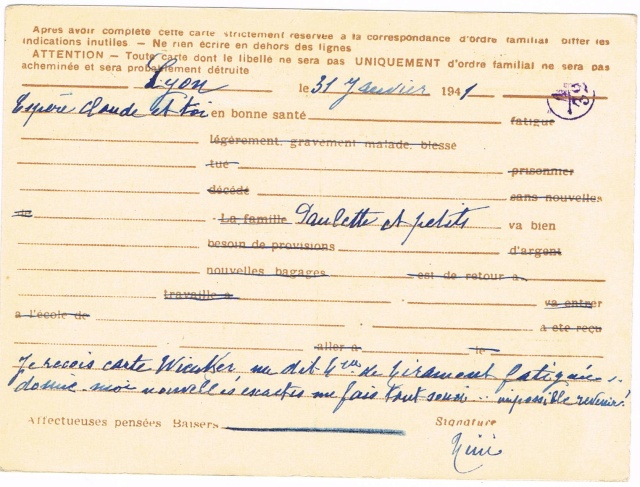 Après avoir complété cette carte strictement réservée à la correspondance d'ordre familial biffer les
indications inutiles — Ne rien écrire en dehors des lignes
ATTENTION — Toute carte dont le libellé ne sera pas UNIQUEMENT d'ordre familial ne sera pas
acheminée et sera probablement détruite
Lyon le 31 Janvier 1941
Espère Claude et toi en bonne santé fatigué
légèrement, gravement malade, blessé
tué prisonnier
décédé sans nouvelles
La famille Paulette et petits va bien
besoin de provisions d'argent
nouvelles bagages est de retour à
travaille à va entrer
à l'école de a été reçu
aller à le
Je reçois carte me dit de fatiguée
donne-moi nouvelles exactes me fais tout souci impossible revenir!
Affectueuses pensées Baisers Signature